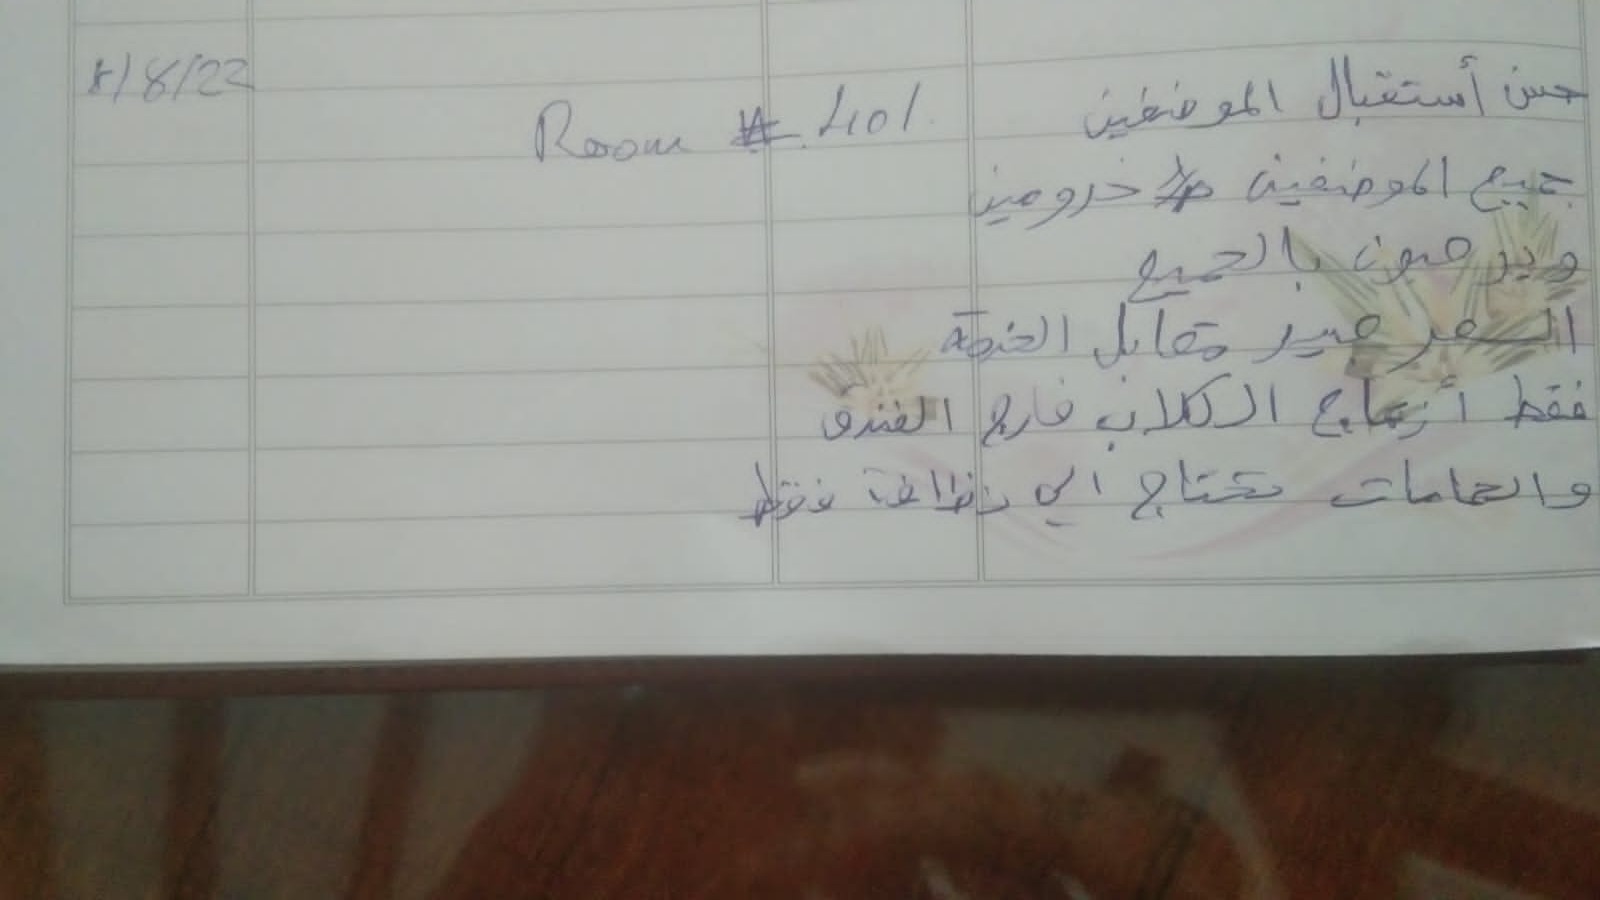 حسن أستقبال الموضفين
Room # 401.
8/8/22
جميع الموضفين خدومين
ويرحبون بالجميع
السعر جيد مقابل الخدمة
فقط أزعاج الكلاب خارج الفندق
والحمامات تحتاج الى نظافة فقط